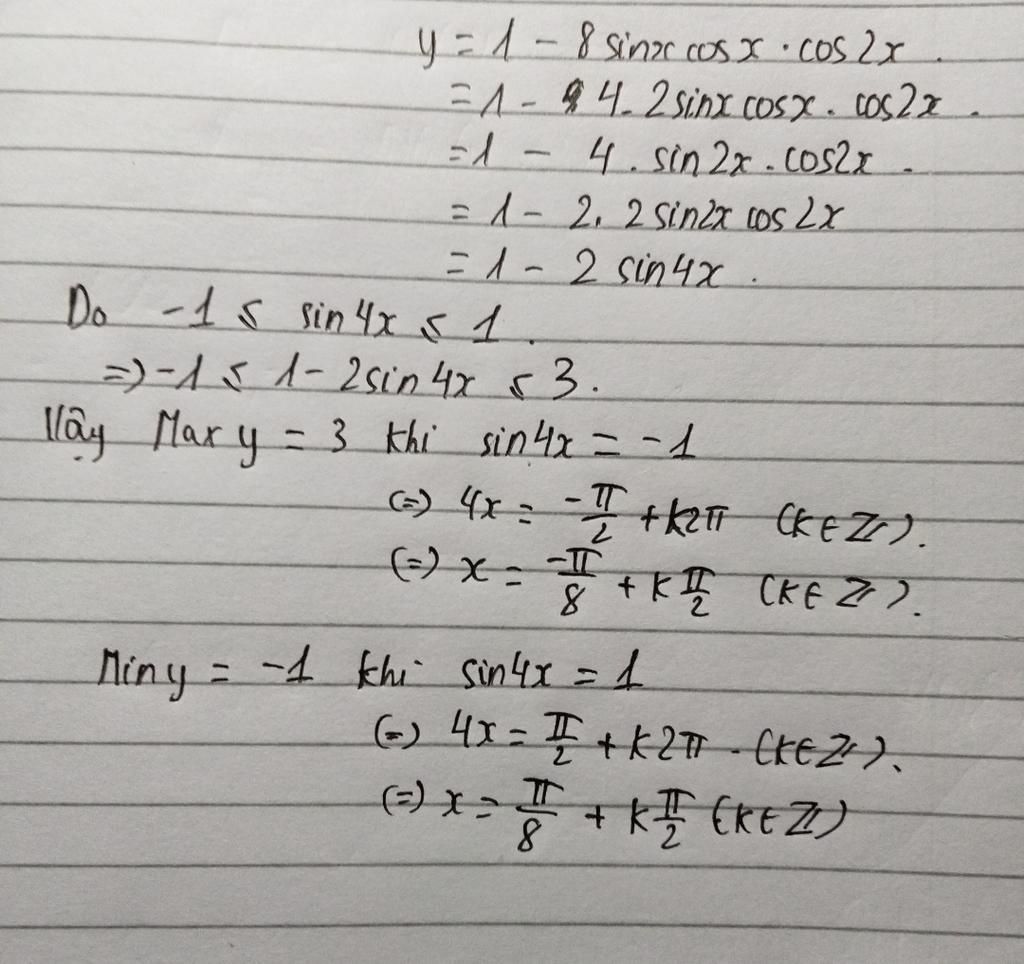 y = 1 - 8 sinx cos x . cos 2x .
= 1 - 4. 2 sinx cosx . cos2x .
= 1 - 4 . sin 2x . cos2x .
= 1 - 2. 2 sin2x cos 2x
= 1 - 2 sin4x .
Do -1 ≤ sin 4x ≤ 1 .
=> -1 ≤ 1 - 2sin 4x ≤ 3 .
Vậy Max y = 3 khi sin4x = -1
(=) 4x = -π/2 + k2π (k ∈ Z).
(=) x = -π/8 + k π/2 (k ∈ Z).
Min y = -1 khi sin4x = 1
(=) 4x = π/2 + k2π . (k ∈ Z).
(=) x = π/8 + k π/2 (k ∈ Z)